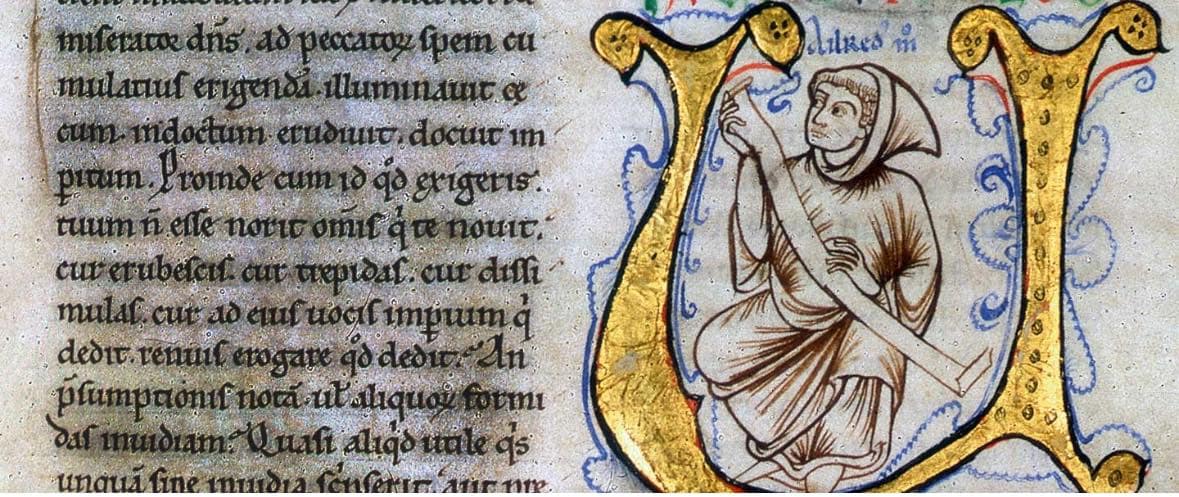 miserator dn̄s, ad peccatoꝝ spem cu
mulatius erigendā. illuminauit ce
cum. indoctum erudiuit. docuit im
ꝑitum. Proinde cum id qd̄ exigeris.
tuum n̄ esse norit om̄is q̇ te nouit.
cur erubescis. cur trepidas. cur dissi
mulas. cur ad eius uocis imꝑium q̇
dedit. renuis erogare qd̄ dedit. An
p̄sumptionis notā. ul̄ aliquoꝝ formi
das inuidiam. Quasi aliq̇d utile q̇s
unquā sine inuidia sċpserit. aut me
Ailred m̊